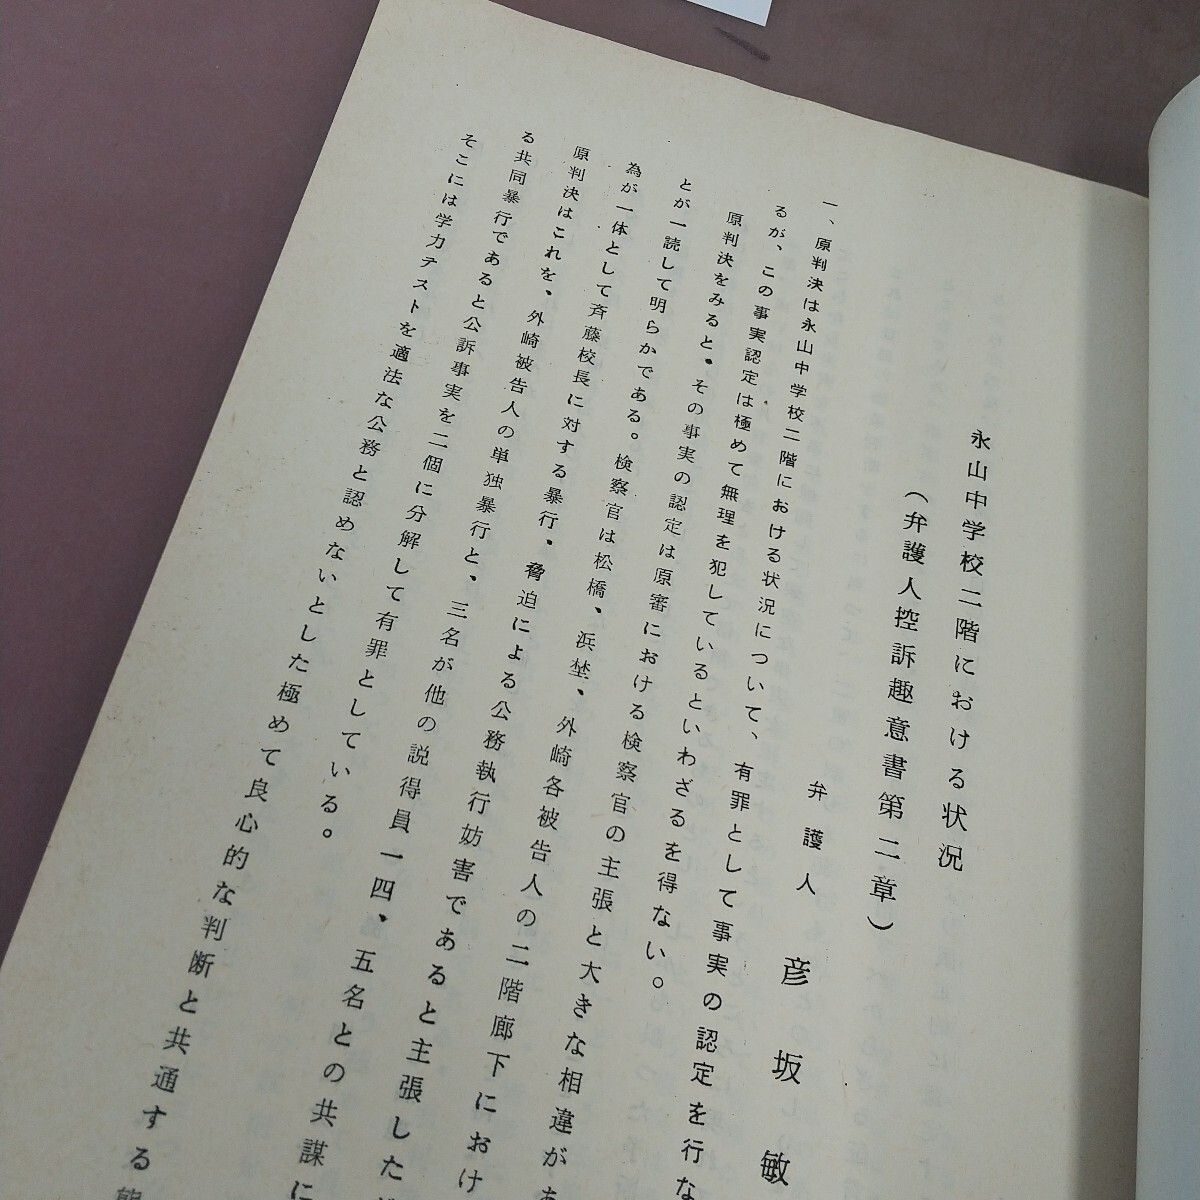 永山中学校二階における状況
（弁護人控訴趣意書第二章）
弁護人 彦坂敏
一、原判決は永山中学校二階における状況について、有罪として事実の認定を行な
るが、この事実認定は極めて無理を犯しているといわざるを得ない。
原判決をみると、その事実の認定は原審における検察官の主張と大きな相違が
とが一読して明らかである。検察官は松橋、浜埜、外崎各被告人の二階廊下におけ
為が一体として斉藤校長に対する暴行、脅迫による公務執行妨害であると主張した
原判決はこれを、外崎被告人の単独暴行と、三名が他の説得員一四、五名との共謀に
る共同暴行であると公訴事実を二個に分解して有罪としている。
そこには学力テストを適法な公務と認めないとした極めて良心的な判断と共通する